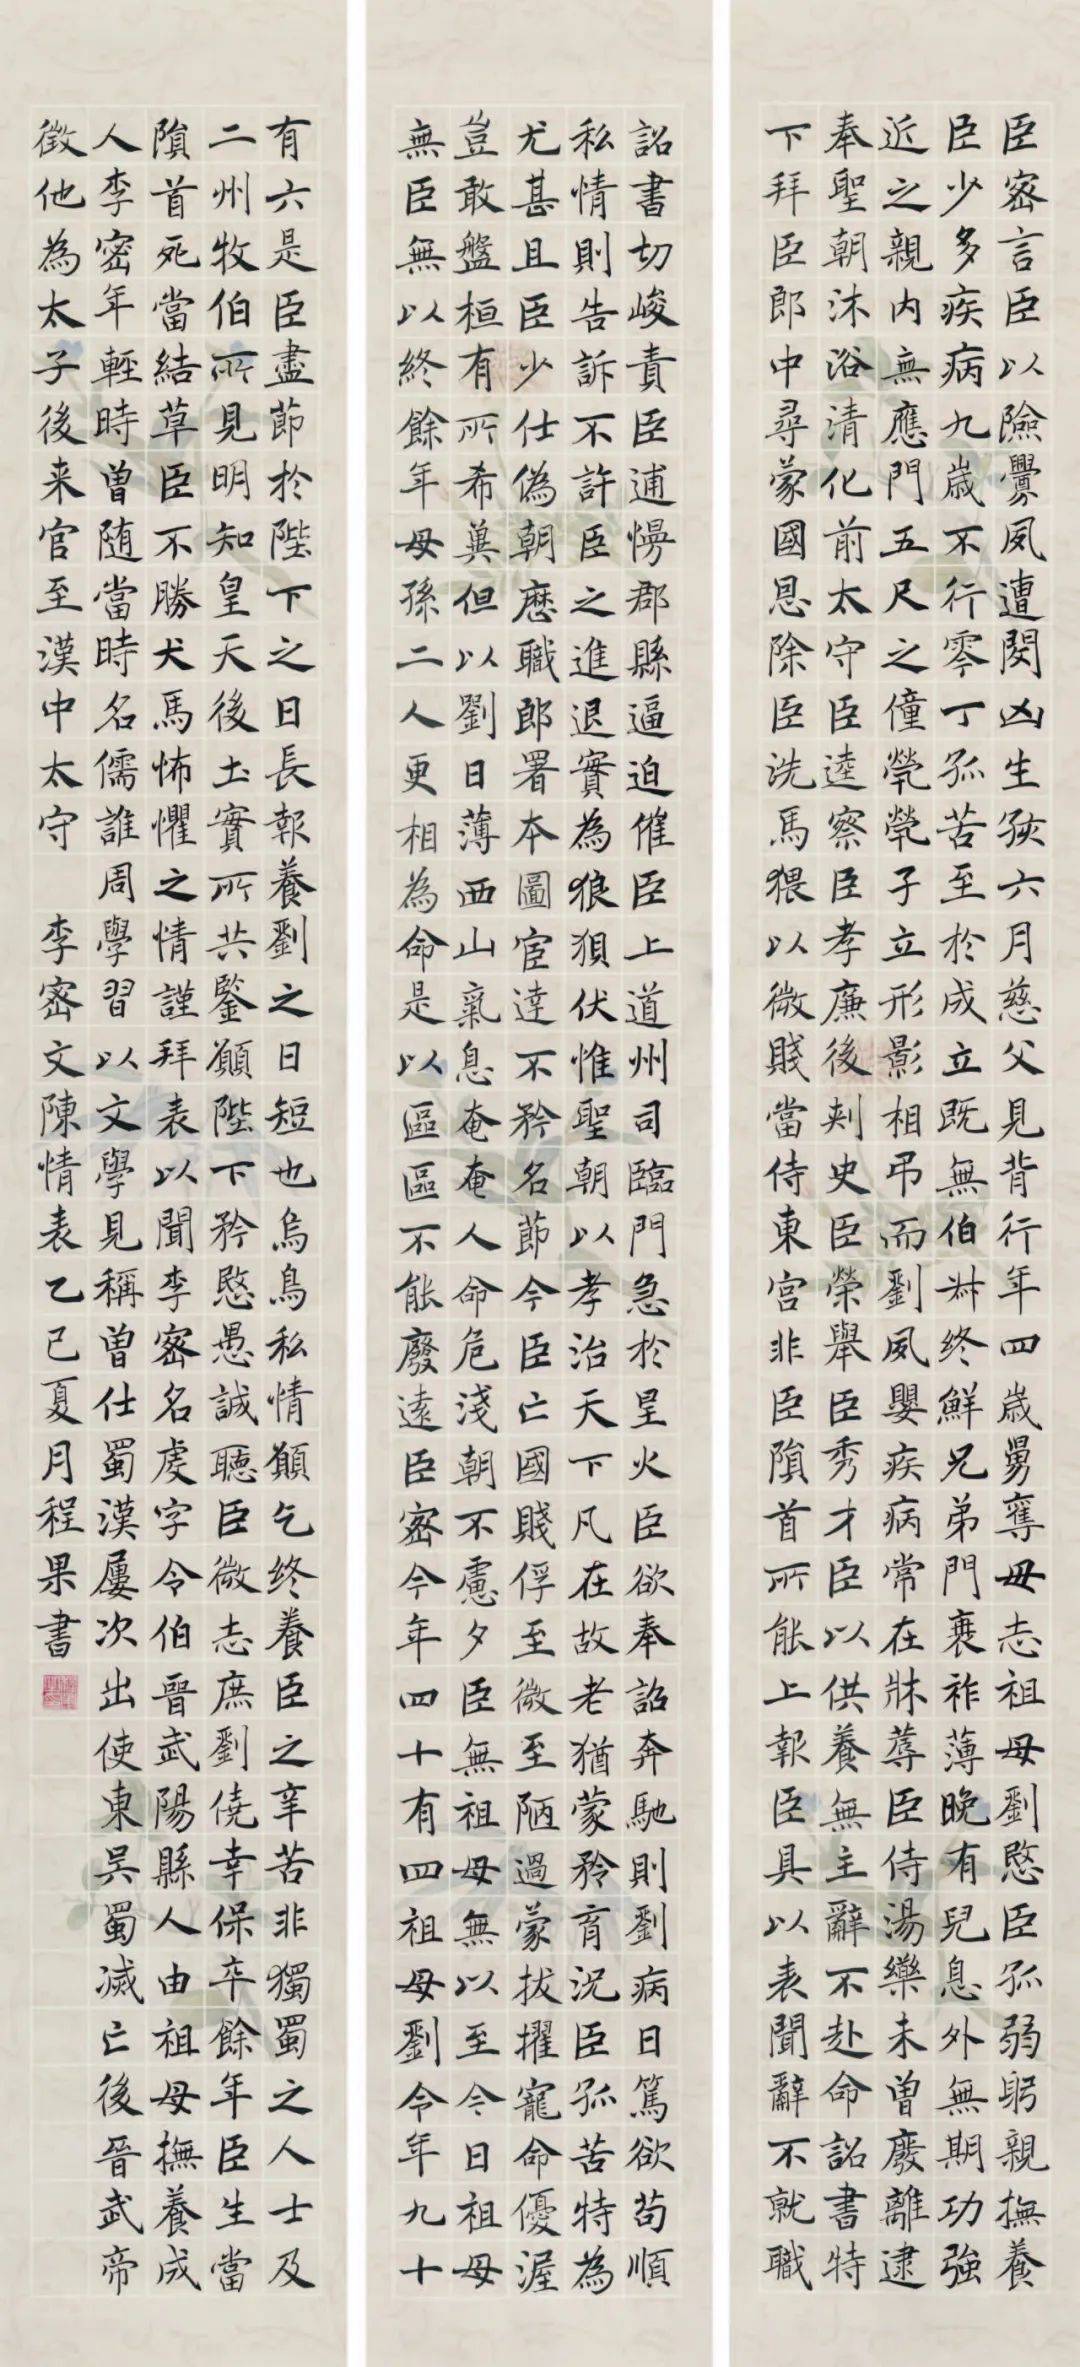 臣密言臣以險釁夙遭閔凶生孩六月慈父見背行年四歲舅奪母志祖母劉愍臣孤弱躬親撫養
臣少多疾病九歲不行零丁孤苦至於成立既無伯叔終鮮兄弟門衰祚薄晚有兒息外無期功強
近之親内無應門五尺之僮煢煢孑立形影相弔而劉夙嬰疾病常在牀蓐臣侍湯藥未曾廢離逮
奉聖朝沐浴清化前太守臣逵察臣孝廉後刺史臣榮舉臣秀才臣以供養無主辭不赴命詔書特
下拜臣郎中尋蒙國恩除臣洗馬猥以微賤當侍東宮非臣隕首所能上報臣具以表聞辭不就職
詔書切峻責臣逋慢郡縣逼迫催臣上道州司臨門急於星火臣欲奉詔奔馳則劉病日篤欲苟順
私情則告訴不許臣之進退實為狼狽伏惟聖朝以孝治天下凡在故老猶蒙矜育況臣孤苦特為
尤甚且臣少仕偽朝歷職郎署本圖宦達不矜名節今臣亡國賤俘至微至陋過蒙拔擢寵命優渥
豈敢盤桓有所希冀但以劉日薄西山氣息奄奄人命危淺朝不慮夕臣無祖母無以至今日祖母
無臣無以終餘年母孫二人更相為命是以區區不能廢遠臣密今年四十有四祖母劉今年九十
有六是臣盡節於陛下之日長報養劉之日短也烏鳥私情願乞終養臣之辛苦非獨蜀之人士及
二州牧伯所見明知皇天後土實所共鑒願陛下矜愍愚誠聽臣微志庶劉僥幸保卒餘年臣生當
隕首死當結草臣不勝犬馬怖懼之情謹拜表以聞李密名虔字令伯晉武陽縣人由祖母撫養成
人李密年輕時曾随當時名儒誰周學習以文學見稱曾仕蜀漢屢次出使東吳蜀滅亡後晉武帝
徵他為太子後来官至漢中太守 李密文陳情表乙巳夏月程果書